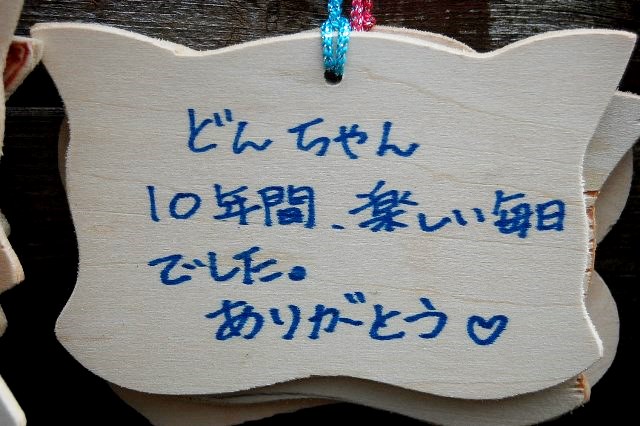 どんちゃん
10年間、楽しい毎日
でした。
ありがとう♡